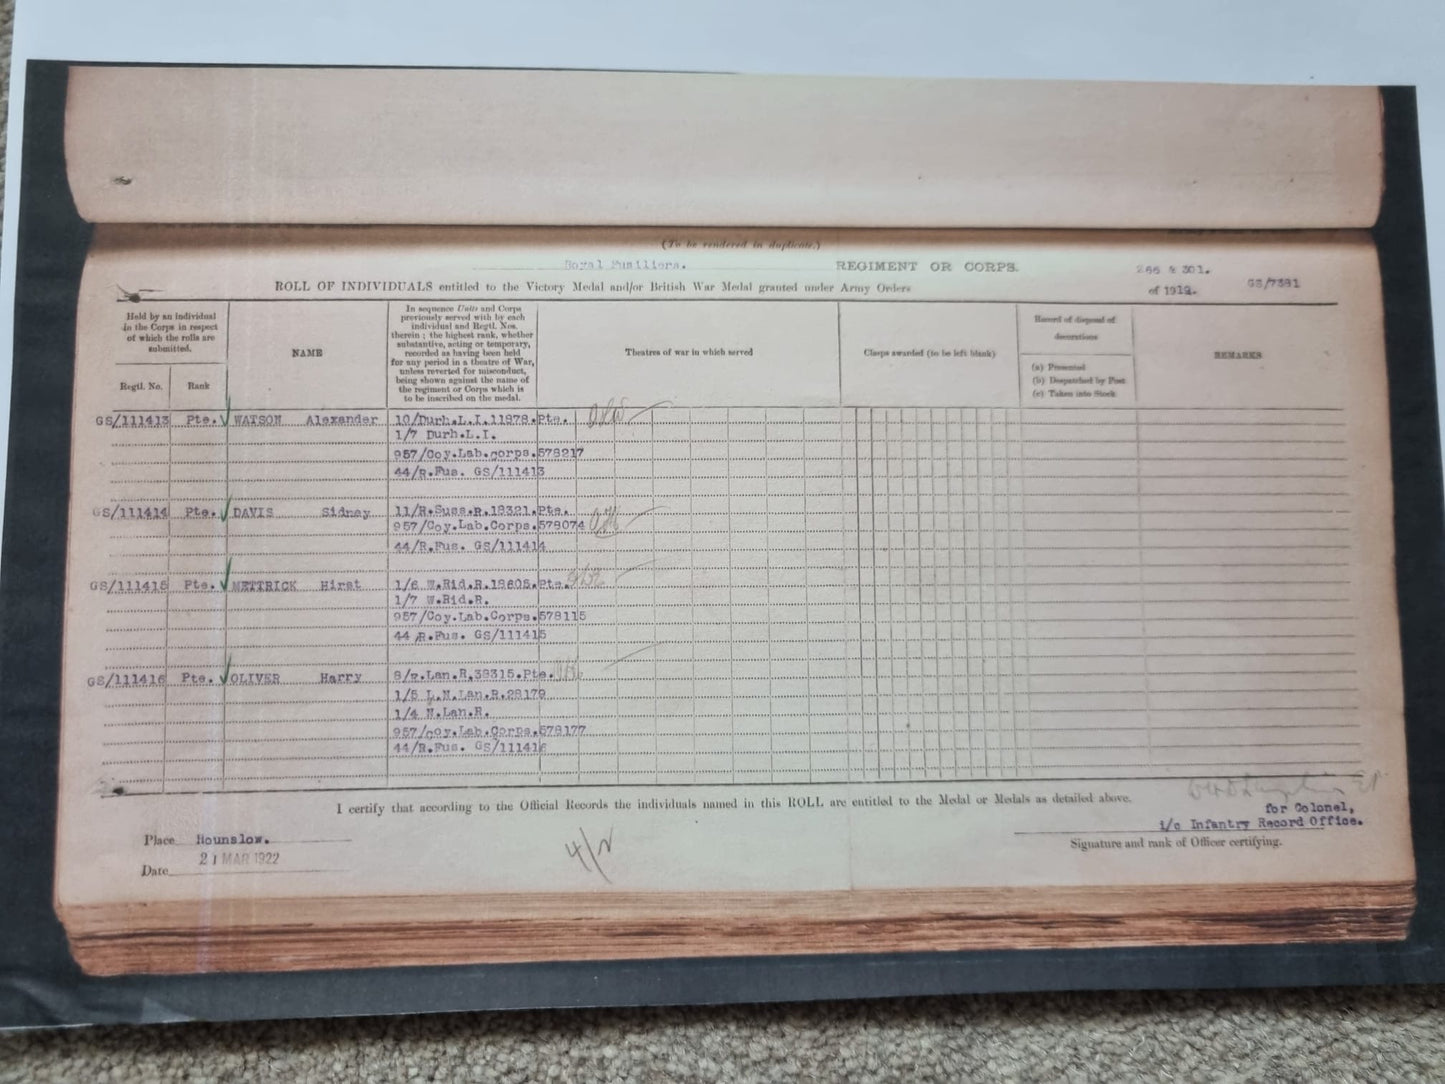 (To be rendered in duplicate.)
Royal Fusiliers. REGIMENT OR CORPS. 266 & 301.
ROLL OF INDIVIDUALS entitled to the Victory Medal and/or British War Medal granted under Army Orders of 1919. GS/7381
Held by an individual
in the Corps in respect
of which the rolls are
submitted.
Regtl. No. Rank
NAME
In sequence Units and Corps
previously served with by each
individual and Regtl. Nos.
therein ; the highest rank, whether
substantive, acting or temporary,
recorded as having been held
for any period in a theatre of War,
unless reverted for misconduct,
being shown against the name of
the regiment or Corps which is
to be inscribed on the medal.
Theatres of war in which served
Clasps awarded (to be left blank)
Record of disposal of
decorations
(a) Presented
(b) Despatched by Post
(c) Taken into Stock
REMARKS
GS/111413 Pte. WATSON Alexander 10/Durh.L.I.11878.Pte.
1/7 Durh.L.I.
957/Coy.Lab.corps.578217
44/R.Fus. GS/111413
GS/111414 Pte. DAVIS Sidney 11/R.Suss.R.18321.Pte.
957/Coy.Lab.Corps.578074
44/R.Fus. GS/111414
GS/111415 Pte. METTRICK Hirst 1/6 W.Rid.R.18605.Pte.
1/7 W.Rid.R.
957/Coy.Lab.Corps.578115
44/R.Fus. GS/111415
GS/111416 Pte. OLIVER Harry Lan.R.39315.Pte.
1/5 L.N.Lan.R.28179
1/4 N.Lan.R.
957/coy.Lab.Corps.578177
44/R.Fus. GS/111416
I certify that according to the Official Records the individuals named in this ROLL are entitled to the Medal or Medals as detailed above.
for Colonel,
i/c Infantry Record Office.
Signature and rank of Officer certifying.
Place Hounslow.
Date 21 MAR 1922